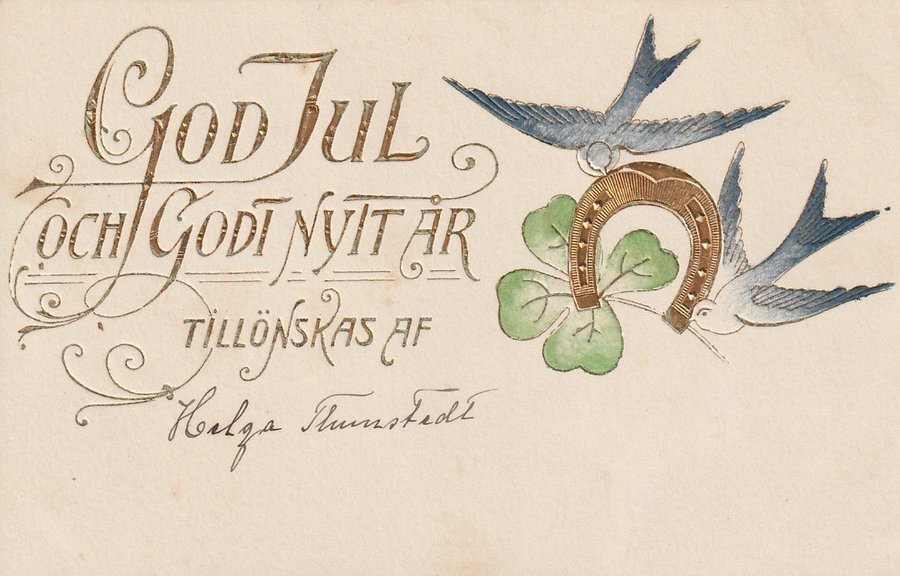 GOD JUL
OCH GODT NYTT ÅR
TILLÖNSKAS AF
Helga Thunstedt